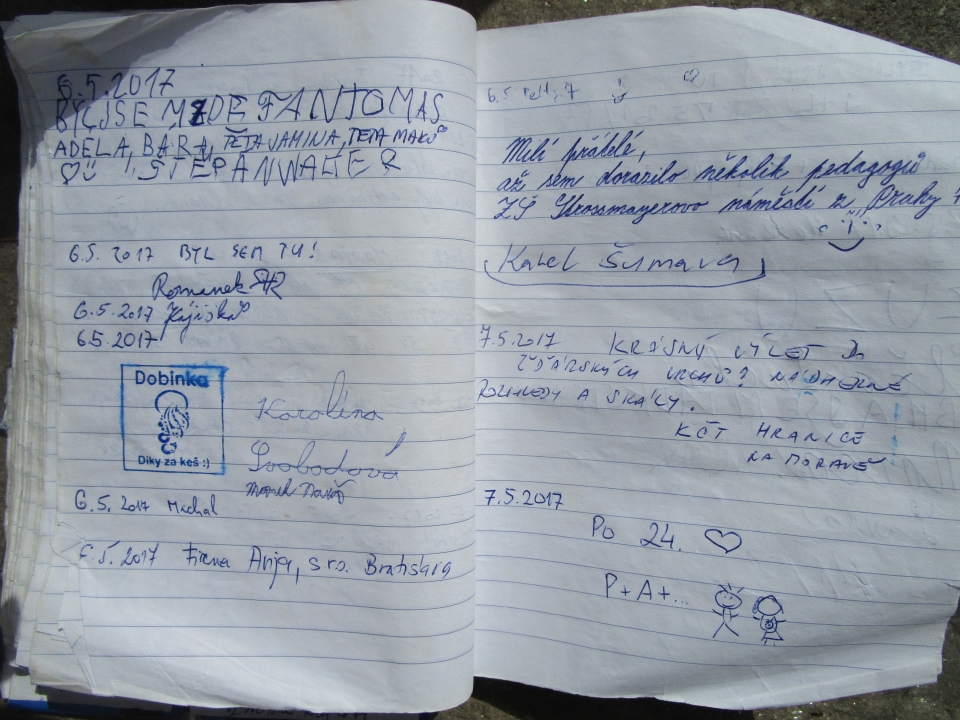 6.5.2017
BYLJSE MZDE FANTOMAS
ADÉLA, BÁRA, TETA JAMINA, TETA MAKU
ŠTĚPÁN WAGER
6.5. 2017 BYL SEM TU!
Romanek
6.5.2017
6.5.2017
Dobinka
Díky za keš :)
Karolína
Svobodová
Marek
6.5. 2017 Michal
6.5. 2017 firma Anja, s r.o. Bratislava
6.5.
Milí přátelé,
až sem dorazilo několik pedagogů
ZŠ Strossmayerovo náměstí z Prahy 7
Karel Šumava
7.5.2017 KRÁSNÝ VÝLET DO
ŽĎÁRSKÝCH VRCHŮ? NÁDHERNÉ
ROZHLEDY A SKÁLY.
KČT HRANICE
NA MORAVĚ
7.5.2017
Po 24.
P+A+...